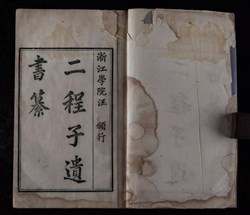 浙江學院汪 頒行
二程子遺
書纂